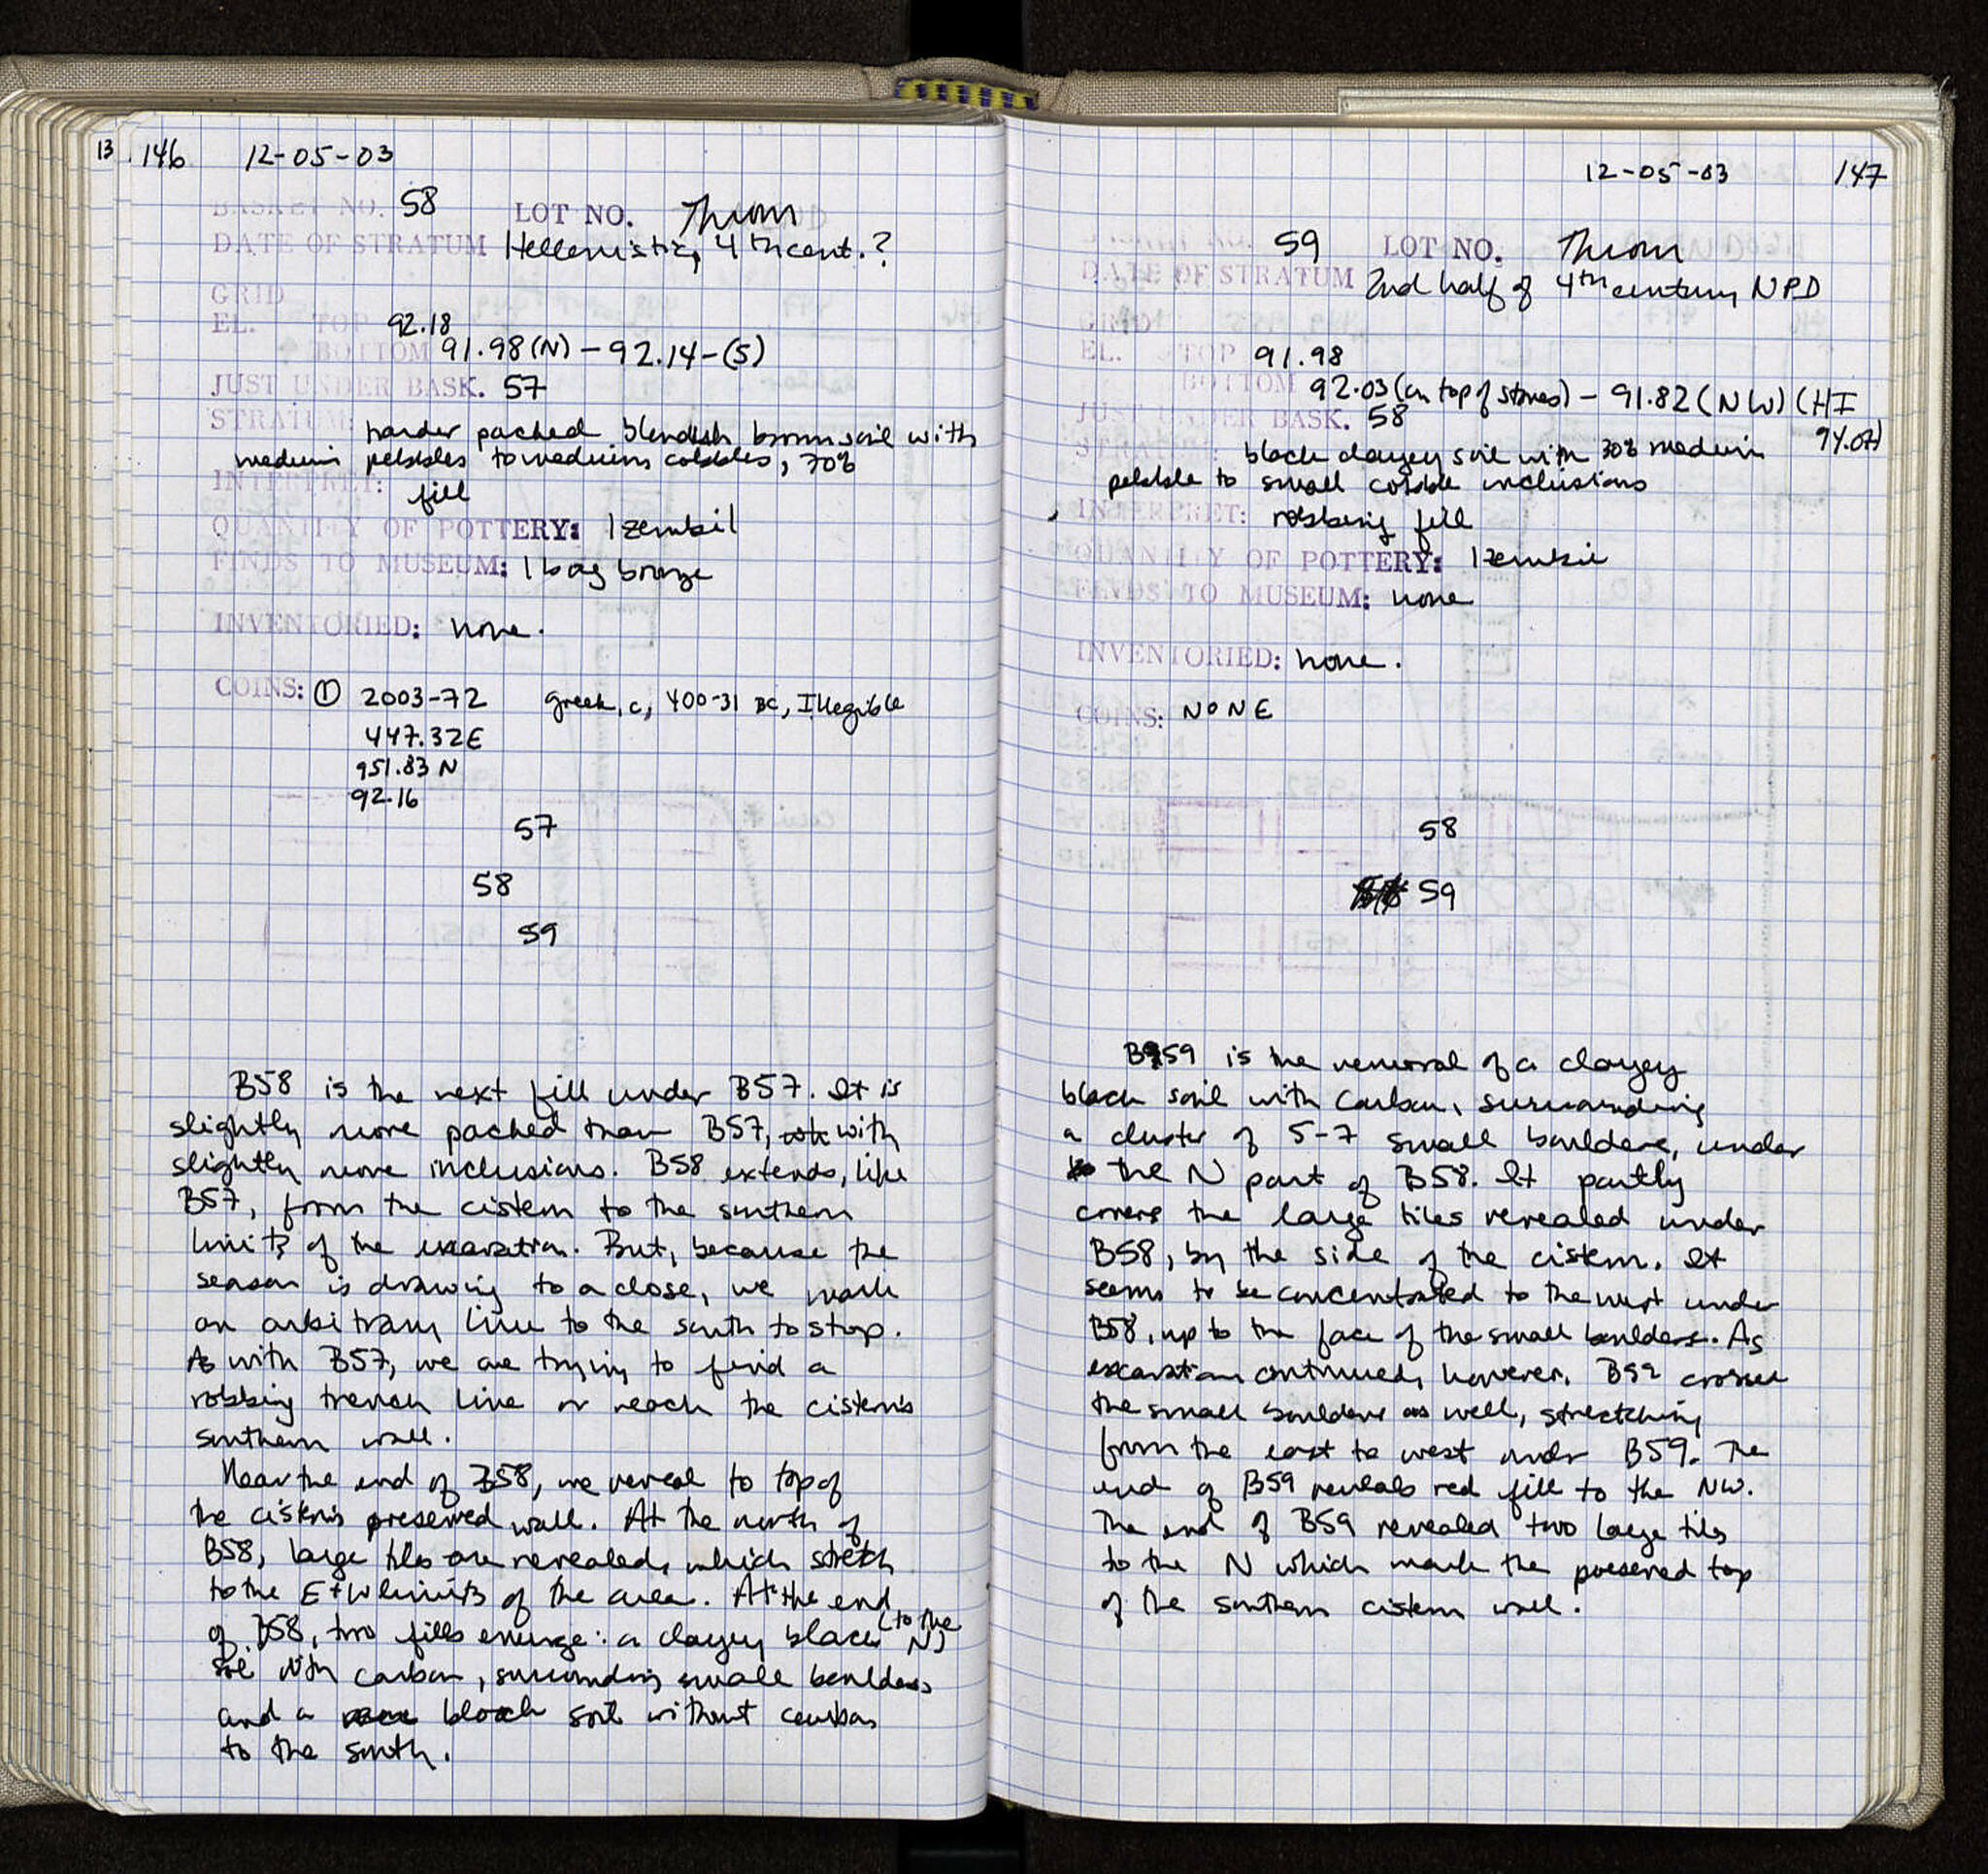 13 146 12-05-03
BASKET NO. 58 LOT NO. Thrown
DATE OF STRATUM Hellenistic, 4th cent.?
GRID
EL. TOP 92.18
BOTTOM 91.98(N) - 92.14-(S)
JUST UNDER BASK. 57
STRATUM: harder packed brown soil with
medium pebbles to medium cobbles, 70%
INTERPRET: fill
QUANTITY OF POTTERY: 1 zembil
FINDS TO MUSEUM: 1 bag bronze
INVENTORIED: none.
COINS: ① 2003-72 Greek, c, 400-31 BC, Illegible
447.32E
951.83 N
92.16
57
58
59
B58 is the next fill under B57. It is
slightly more packed than B57, with
slightly more inclusions. B58 extends, like
B57, from the cistern to the southern
limits of the excavation. But, because the
season is drawing to a close, we mark
an arbitrary line to the south to stop.
As with B57, we are trying to find a
robbing trench line or reach the cistern's
southern wall.
Near the end of B58, we reveal to top of
the cistern's preserved wall. At the north of
B58, large tiles are revealed, which stretch
to the E+W limits of the area. At the end
of B58, two fills emerge: a clayey black (to the N)
soil with carbon, surrounding small boulders
and a black soil without carbon
to the south.
12-05-03 147
59 LOT NO. Thrown
DATE OF STRATUM 2nd half of 4th century NPD
GRID
EL. TOP 91.98
BOTTOM 92.03 (on top of stones) - 91.82 (NW) (HI
94.07)
JUST UNDER BASK. 58
STRATUM: black clayey soil with 30% medium
pebble to small cobble inclusions
INTERPRET: robbing fill
QUANTITY OF POTTERY: 1 zembil
FINDS TO MUSEUM: none
INVENTORIED: none.
COINS: NONE
58
59
B59 is the removal of a clayey
black soil with carbon, surrounding
a cluster of 5-7 small boulders, under
the N part of B58. It partly
covers the large tiles revealed under
B58, by the side of the cistern. It
seems to be concentrated to the west under
B58, up to the face of the small boulders. As
excavation continued, however, B59 crosses
the small boulders as well, stretching
from the east to west under B59. The
end of B59 reveals red fill to the NW.
The end of B59 revealed two large tiles
to the N which mark the preserved top
of the southern cistern wall.